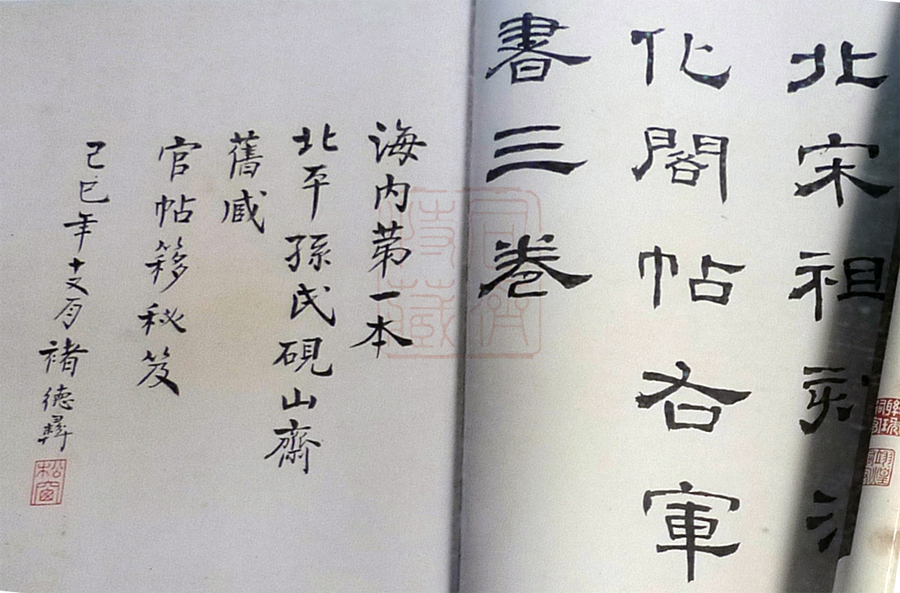 北宋祖
化閣帖右軍
書三卷
海内苐一本
北平孫氏硯山齋
舊臧
官帖簃秘笈
己巳年十月褚德彝
松窗